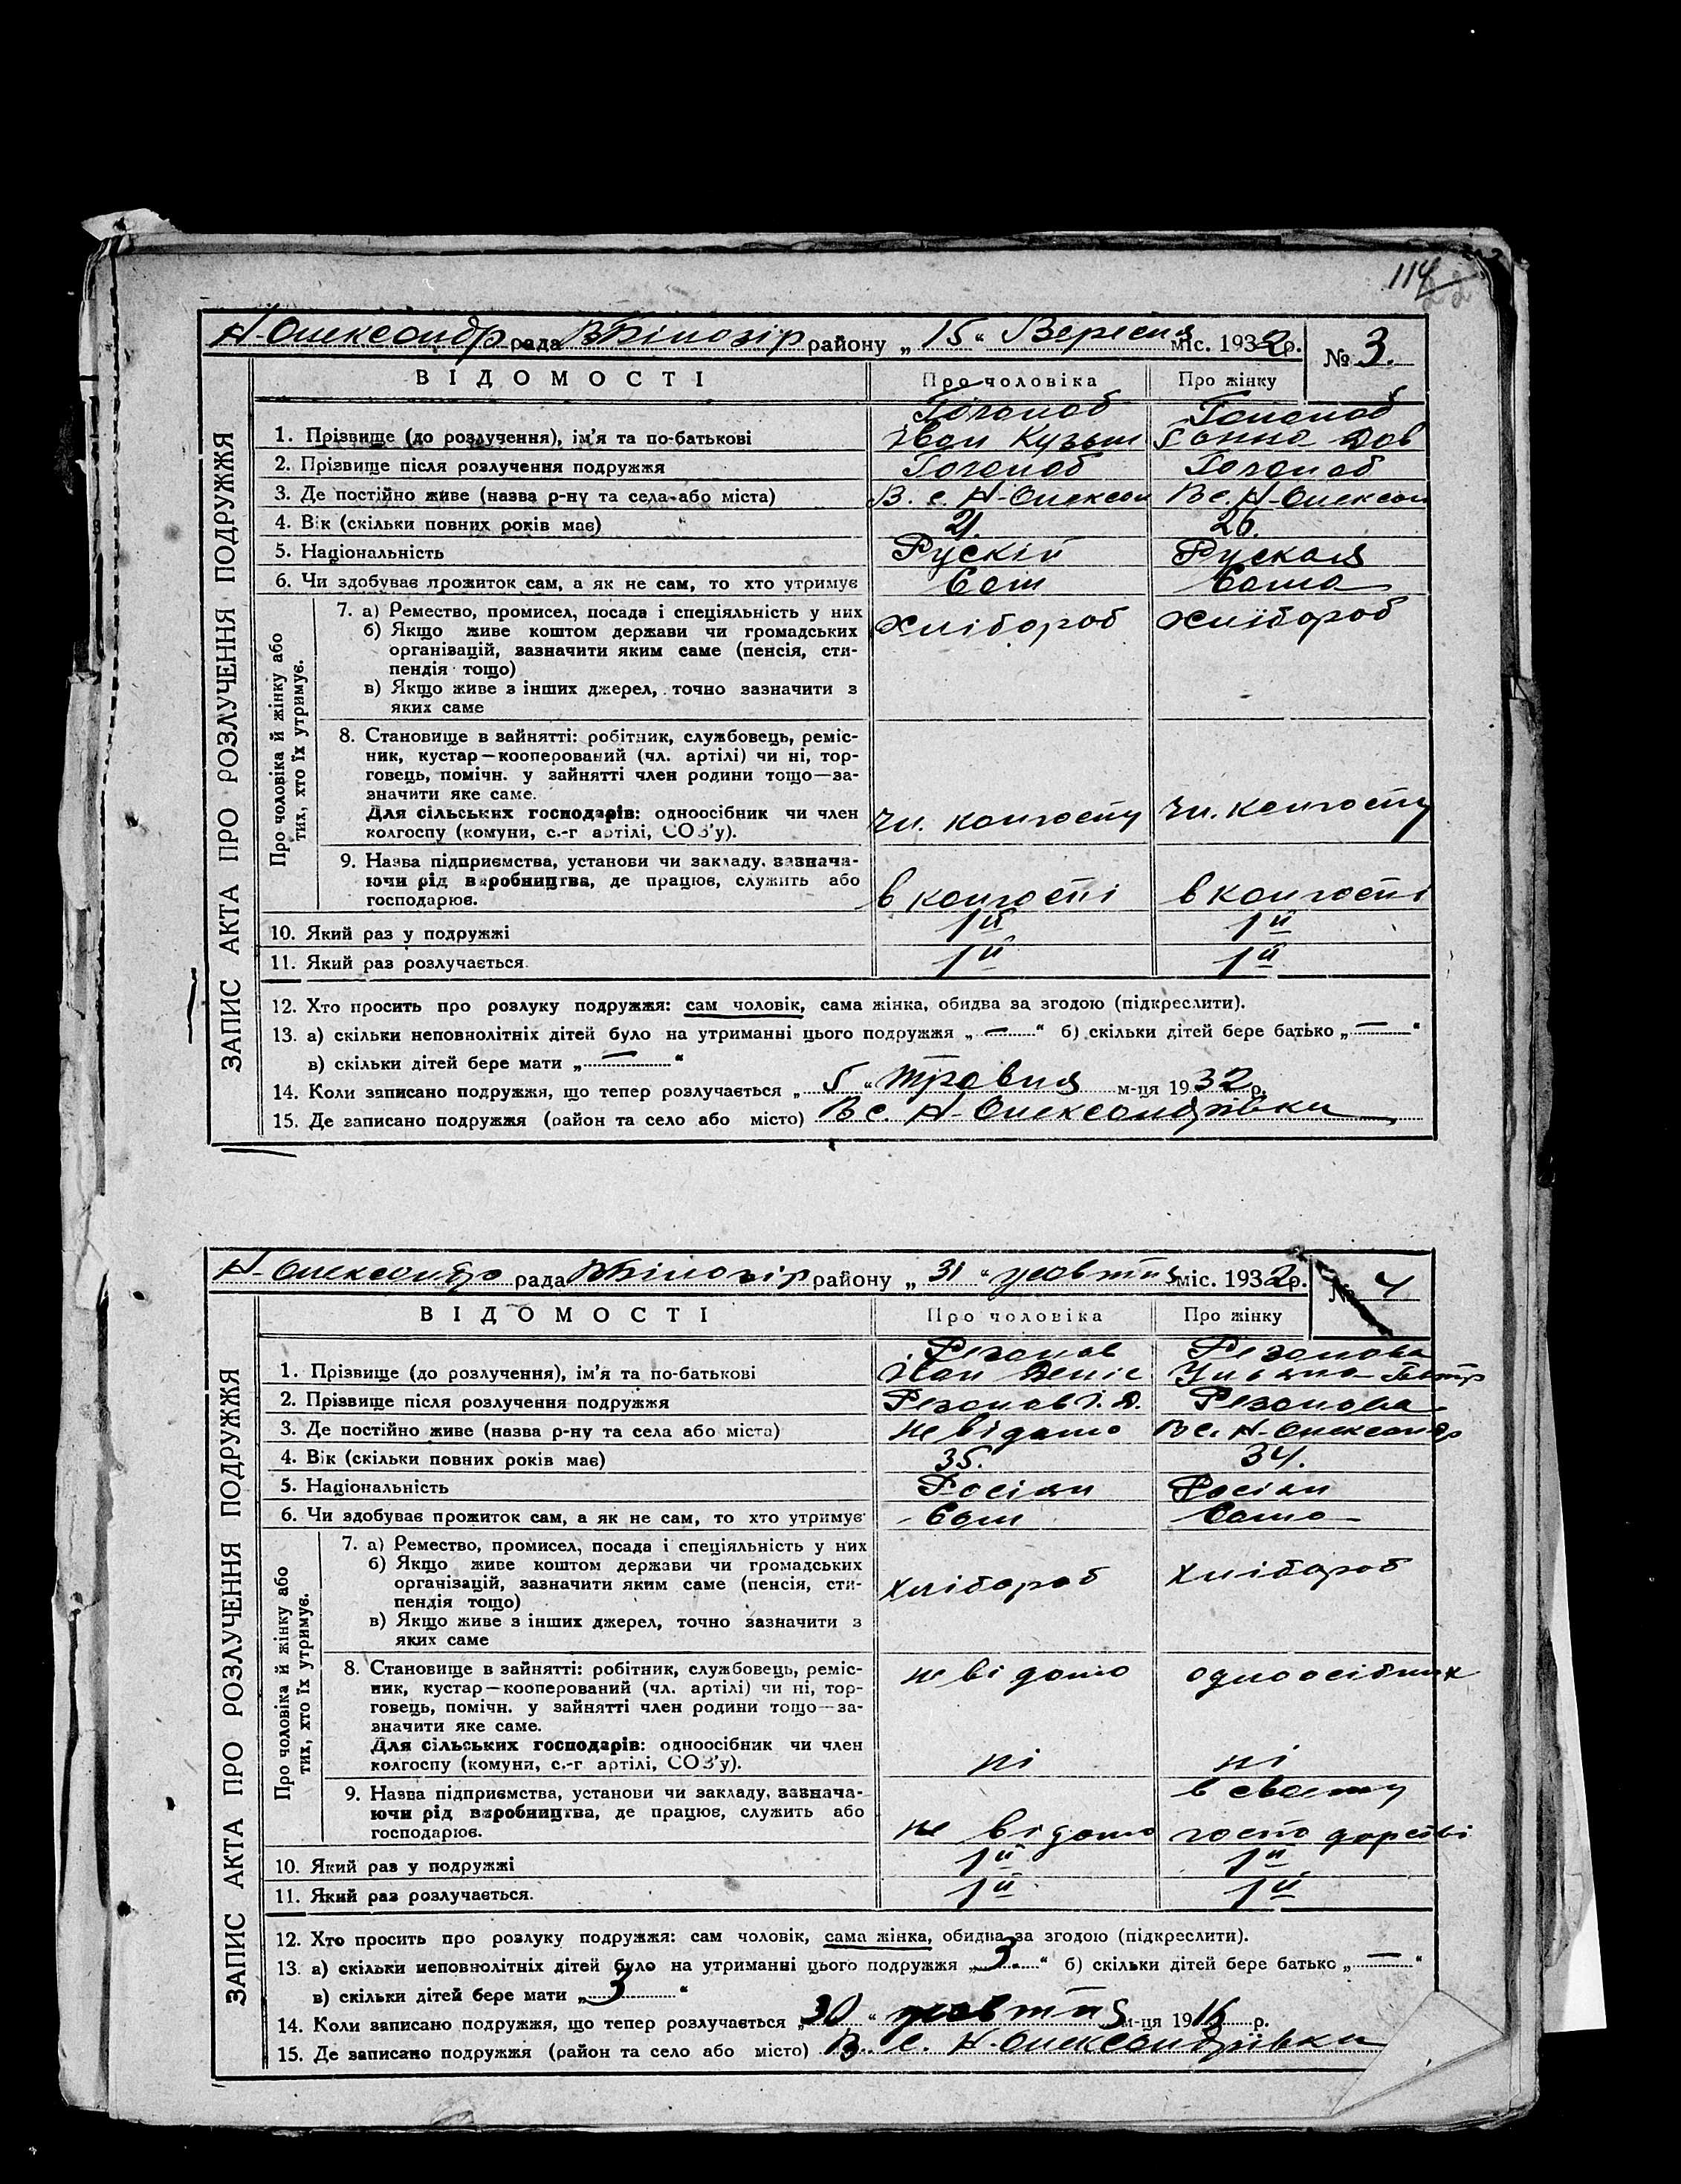 114
22
Н-Олександр рада ВБілозір району „ 15 “ Вересня міс. 1932 р. № 3.
ВІДОМОСТІ Про чоловіка Про жінку
ЗАПИС АКТА ПРО РОЗЛУЧЕННЯ ПОДРУЖЖЯ
1. Прізвище (до розлучення), ім’я та по-батькові Іван Кузьм Ганна
2. Прізвище після розлучення подружжя
3. Де постійно живе (назва р-ну та села або міста) В. с. Н-Олексан В с. Н-Олексан
4. Вік (скільки повних років має) 21. 26.
5. Національність Рускій Руская
6. Чи здобуває прожиток сам, а як не сам, то хто утримує Сам Сама
Про чоловіка й жінку або тих, хто їх утримує.
7. а) Ремество, промисел, посада і спеціяльність у них хлібороб хлібороб
б) Якщо живе коштом держави чи громадських
організацій, зазначити яким саме (пенсія, сти-
пендія тощо)
в) Якщо живе з інших джерел, точно зазначити з
яких саме
8. Становище в зайнятті: робітник, службовець, реміс-
ник, кустар—кооперований (чл. артілі) чи ні, тор-
говець, помічн. у зайнятті член родини тощо—за-
значити яке саме.
Для сільських господарів: одноосібник чи член
колгоспу (комуни, с.-г артілі, СОЗ’у). чл. колгоспу чл. колгоспу
9. Назва підприємства, установи чи закладу, зазнача-
ючи рід виробництва, де працює, служить або
господарює. в колгоспі в колгоспі
10. Який раз у подружжі 1й 1й
11. Який раз розлучається. 1й 1й
12. Хто просить про розлуку подружжя: сам чоловік, сама жінка, обидва за згодою (підкреслити).
13. а) скільки неповнолітніх дітей було на утриманні цього подружжя „ — “ б) скільки дітей бере батько „ — “
в) скільки дітей бере мати „ — “
14. Коли записано подружжя, що тепер розлучається „ 5 “ травня м-ця 1932 р.
15. Де записано подружжя (район та село або місто) В с. Н-Олександрівки
Н-Олександр рада ВБілозір району „ 31 “ жовтня міс. 1932 р. № 4
ВІДОМОСТІ Про чоловіка Про жінку
ЗАПИС АКТА ПРО РОЗЛУЧЕННЯ ПОДРУЖЖЯ
Резанов Резанова
1. Прізвище (до розлучення), ім’я та по-батькові Іван Деніс Уляна Петр
2. Прізвище після розлучення подружжя Резанов І. Д. Резанова
3. Де постійно живе (назва р-ну та села або міста) не відомо В с. Н-Олександр
4. Вік (скільки повних років має) 35. 34.
5. Національність Росіян Росіян
6. Чи здобуває прожиток сам, а як не сам, то хто утримує Сам Сама
Про чоловіка й жінку або тих, хто їх утримує.
7. а) Ремество, промисел, посада і спеціяльність у них
б) Якщо живе коштом держави чи громадських
організацій, зазначити яким саме (пенсія, сти-
пендія тощо) хлібороб хлібороб
в) Якщо живе з інших джерел, точно зазначити з
яких саме
8. Становище в зайнятті: робітник, службовець, реміс- не відомо одноосібник
ник, кустар—кооперований (чл. артілі) чи ні, тор-
говець, помічн. у зайнятті член родини тощо—за-
значити яке саме.
Для сільських господарів: одноосібник чи член
колгоспу (комуни, с.-г артілі, СОЗ’у). ні ні
9. Назва підприємства, установи чи закладу, зазнача- в своєму
ючи рід виробництва, де працює, служить або
господарює. не відомо господарстві
10. Який раз у подружжі 1й 1й
11. Який раз розлучається. 1й 1й
12. Хто просить про розлуку подружжя: сам чоловік, сама жінка, обидва за згодою (підкреслити).
13. а) скільки неповнолітніх дітей було на утриманні цього подружжя „ 3. “ б) скільки дітей бере батько „ — “
в) скільки дітей бере мати „ 3 “
14. Коли записано подружжя, що тепер розлучається „ 30 “ жовтня м-ця 19 р.
15. Де записано подружжя (район та село або місто) В. с. Н-Олександрівки